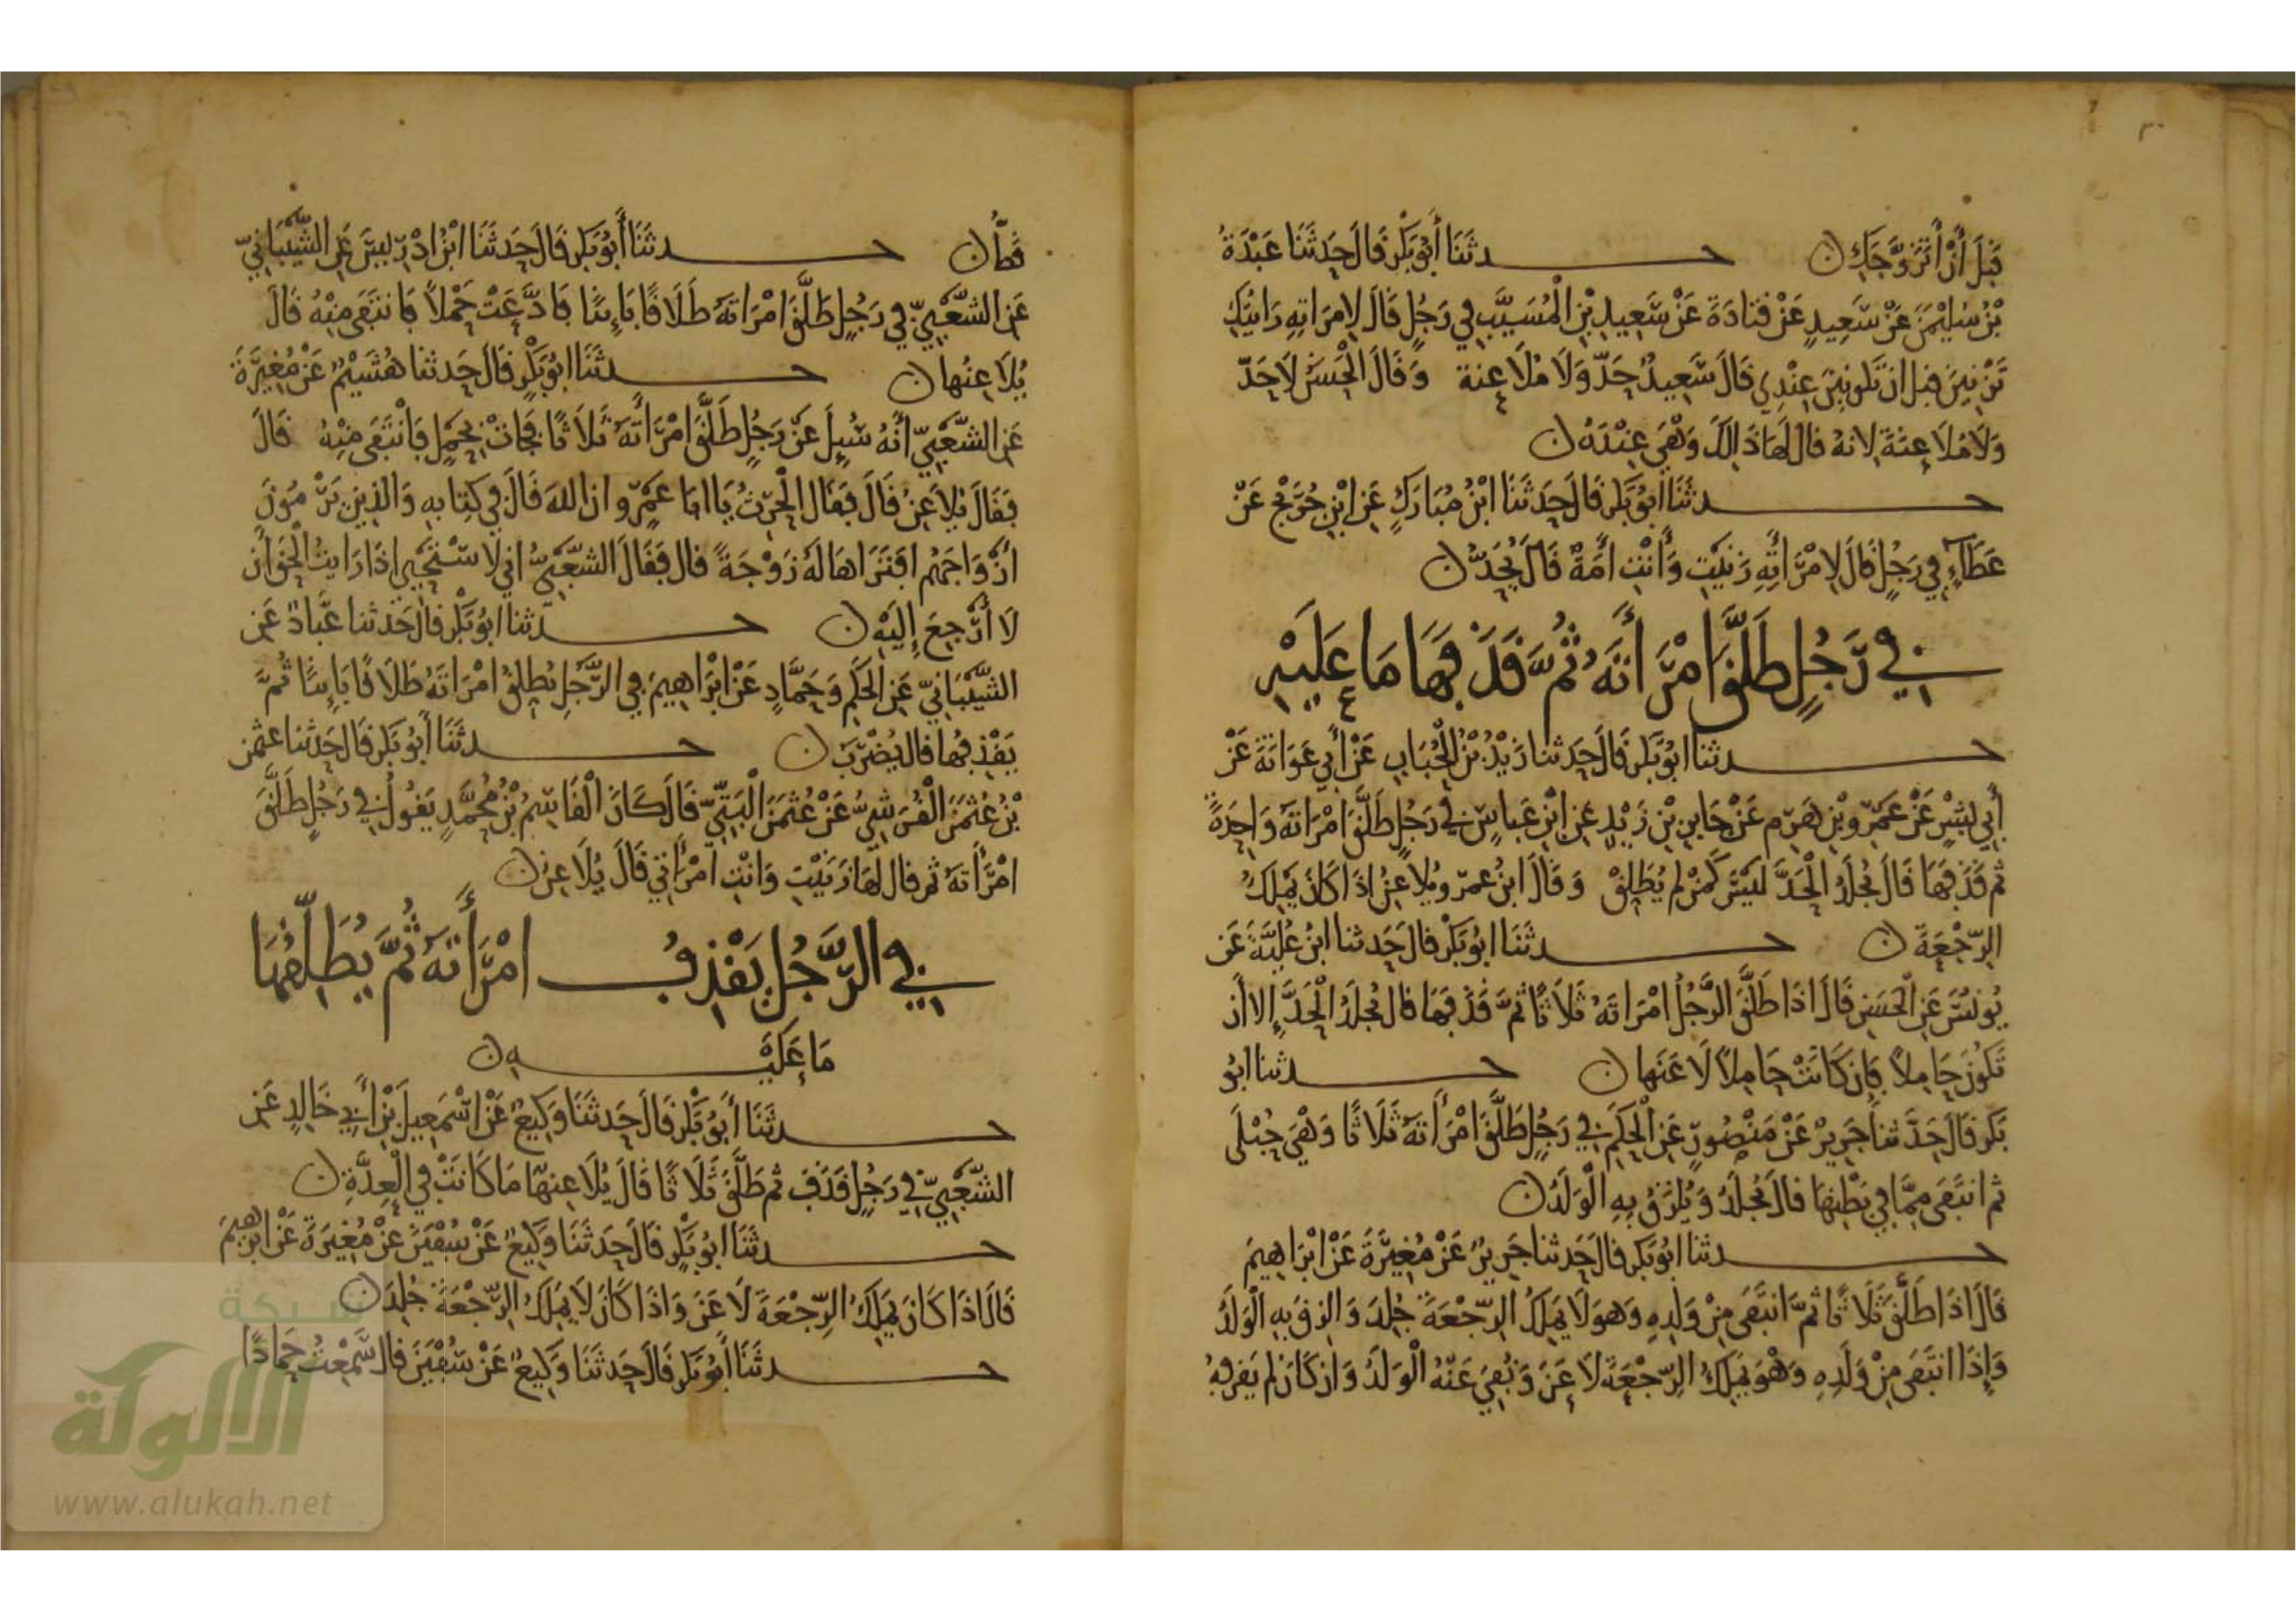 قَبْلَ أَنْ أَتَزَوَّجَكِ ن حـــدثَنَا أَبُو بَكْرٍ قَالَ حَدثَنَا عَبْدَةُ
بْنُ سُلَيْمَنَ عَنْ سَعِيدٍ عَنْ قَتَادَةَ عَنْ سَعِيدِ بْنِ الْمُسَيَّبِ فِي رَجُلٍ قَالَ لِامرَاتِهِ رَايتُكِ
تَزْنِينَ قبل ان تَكونِينَ عِنْدِي قَالَ سَعِيدٌ حَدّ وَلَا مُلَاعنة وَقَالَ الْحَسَنُ لَا حَدّ
وَلَا مُلَاعنَةَ لانهُ قال لَهَا ذَالِكَ وَهْيَ عِنْدَهُ ن
حـــدثَنَا ابُو بَكْرٍ قَالَ حَدثَنَا ابْنُ مُبَارَكٍ عَنِ ابْنِ جُرَيْجٍ عَنْ
عَطَآءٍ فِي رَجُلٍ قَالَ لِامْرَأَتِهِ زَنَيْتِ وَأَنْتِ أَمَةٌ قَالَ يُحَدُّ ن
فِي رَجُلٍ طَلَّقَ امْرَأَتَهُ ثُمَّ قَذَفهَا مَا عَلَيْهِ
حـــدثنا ابُو بَكْرٍ قَالَ حَدثنا زَيْدُ بْنُ الْحُبَابِ عَنْ أَبِي عَوَانَةَ عَنْ
أَبِي بِشْرٍ عَنْ عَمْرِو بْنِ هَرِمٍ عَنْ جَابِرِ بْنِ زَيْدٍ عَنِ ابْنِ عَبَاسٍ فِي رَجُلٍ طَلَّقَ امْرَاتَهُ وَاحِدَةً
ثم قَذَفَهَا قَالَ جُلِدَ الْحَدَّ لَيْسَ كَمَنْ لم يُطَلِقْ وَقَالَ ابنُ عمرَ ويُلَاعِنُ اذَا كَانَ يَمْلِكُ
الرَّجْعَةَ ن حـــدثَنَا ابُو بَكْرٍ قالَ حَدثنا ابنُ عُلَيَّةَ عَن
يُونُسَ عَنِ الْحَسَنِ قَالَ اذَا طَلَّقَ الرَّجُلُ امْرَاتَهُ ثَلَاثًا ثُمَّ قَذَفَهَا قال جُلِدَ الْحَدَّ إلا أن
تَكُونَ حَامِلًا فَإِن كَانَتْ حَامِلًا لَاعَنَهَا ن حـــدثنا ابُو
بَكر قَالَ حَدَّثنا جَرِيرٌ عَنْ مَنْصُورٍ عَنِ الْحَكَمِ فِي رَجُلٍ طَلَّقَ امْرَأَتَهُ ثَلَاثًا وَهْيَ حُبْلَى
ثم انتَفَى مِمَّا فِي بَطْنِهَا قالَ يُجْلَدُ وَيُلْزَقُ بِهِ الْوَلَدُ ن
حـــدثنا ابُو بَكرٍ قالَ حَدثنا جَرِيرٌ عَنْ مُغِيرَةَ عَنْ ابْرَاهِيمَ
قَالَ اذَا طَلَّقَ ثَلَاثًا ثمَّ انتَفَى مِنْ وَلَدِهِ وَهوَ لَا يَمْلِكُ الرَّجْعَةَ جُلِدَ وَالزِقَ بِهِ الْوَلَدُ
وَإِذَا انتَفَى مِنْ وَلَدِهِ وَهْوَ يَمْلِكُ الرَّجْعَةَ لَاعَنَ وَنُفِيَ عَنْهُ الْوَلَدُ وَان كَانَ لم يَقربْهُ
قطُّ ن حـــدثَنَا أَبُو بَكرٍ قَالَ حَدثَنَا ابْنُ ادْرِيسَ عَنِ الشَّيْبَانِيِّ
عَنِ الشَّعْبِيِّ فِي رَجُلٍ طَلَّقَ امْرَاتَهُ طَلَاقًا بَائِنًا فَادَّعَتْ حَمْلًا فَانتَفَى مِنْهُ قَالَ
يُلَاعِنُهَا ن حـــدثَنَا ابُو بَكْرٍ قَالَ حَدثنا هُشَيْمٌ عَنْ مُغِيرَةَ
عَنِ الشَّعْبِيِّ أَنَّهُ سُيِلَ عَنْ رَجُلٍ طَلَّقَ امْرَأَتَهُ ثَلَاثًا فَجَاتْ بِحَمْلٍ فَانْتَفَى مِنْهُ قَالَ
فَقَالَ يُلاعِنُ قَالَ فَقَالَ الْحرثُ يَا ابا عَمْرٍو ان اللهَ قَالَ فِي كِتابِهِ وَالذِينَ يَرْمُونَ
أَزْوَاجَهُم افَتَرَاهَا لَهُ زَوْجَةً قال فَقَالَ الشَّعْبِيُّ اني لاسْتَحْيِي اذَا رَايتُ الْحَقَّ أَن
لَا أَرْجِعَ إِلَيْهِ ن حـــدثنا ابُو بَكْرٍ قَالَ حَدثنا عَبَّادٌ عَنِ
الشَّيْبَانِيِّ عَنِ الْحَكَمِ وَحَمَّادٍ عَنْ ابْرَاهِيمَ فِي الرَّجُلِ يُطَلِقُ امْرَاتَهُ طَلَاقًا بَائِنًا ثُمَّ
يَقْذِفُهَا قال يُضْرَبُ ن حـــدثَنَا أَبُو بَكرٍ قَالَ حَدثنا عثمن
بْنُ عُثْمَنَ الْقُرَشِيُّ عَنْ عُثْمَنَ الْبَتِّيِّ قَالَ كَانَ الْقَاسِمُ بْنُ مُحَمَّدٍ يَقُولُ فِي رَجُلٍ طَلَّقَ
امْرَأَتَهُ ثم قال لَهَا زَنَيْتِ وَانْتِ امْرَأَتِي قَالَ يُلَاعِنُ ن
فِي الرَّجُلِ يَقْذِفُ امْرَأَتَهُ ثُمَّ يُطَلِّقُهَا
مَا عَلَيْهِ ن
حـــدثَنَا أَبُو بَكْرٍ قَالَ حَدثَنَا وَكِيعٌ عَنْ اسْمَعِيلَ بْنِ أَبِي خَالِدٍ عَنِ
الشَّعْبِيِّ فِي رَجُلٍ قَذَفَ ثم طَلَّقَ ثَلَاثًا قَالَ يُلَاعِنهَا مَا كَانَتْ فِي الْعِدَّةِ ن
حـــدثَنَا ابُو بَكْرٍ قَالَ حَدثَنَا وَكِيعٌ عَنْ سُفْيَنَ عَنْ مُغِيرَةَ عَنْ ابرهيمَ
قَالَ اذَا كَانَ يَمْلِكُ الرَّجْعَةَ لَاعَنَ وَاذَا كَانَ لَا يَمْلِكُ الرَّجْعَةَ جُلِدَ ن
حـــدثَنَا أَبُو بَكرٍ قَالَ حَدثَنَا وَكِيعٌ عَنْ سُفْيَنَ قال سَمِعْتُ حَمادًا
شبكة
الألوكة
www.alukah.net